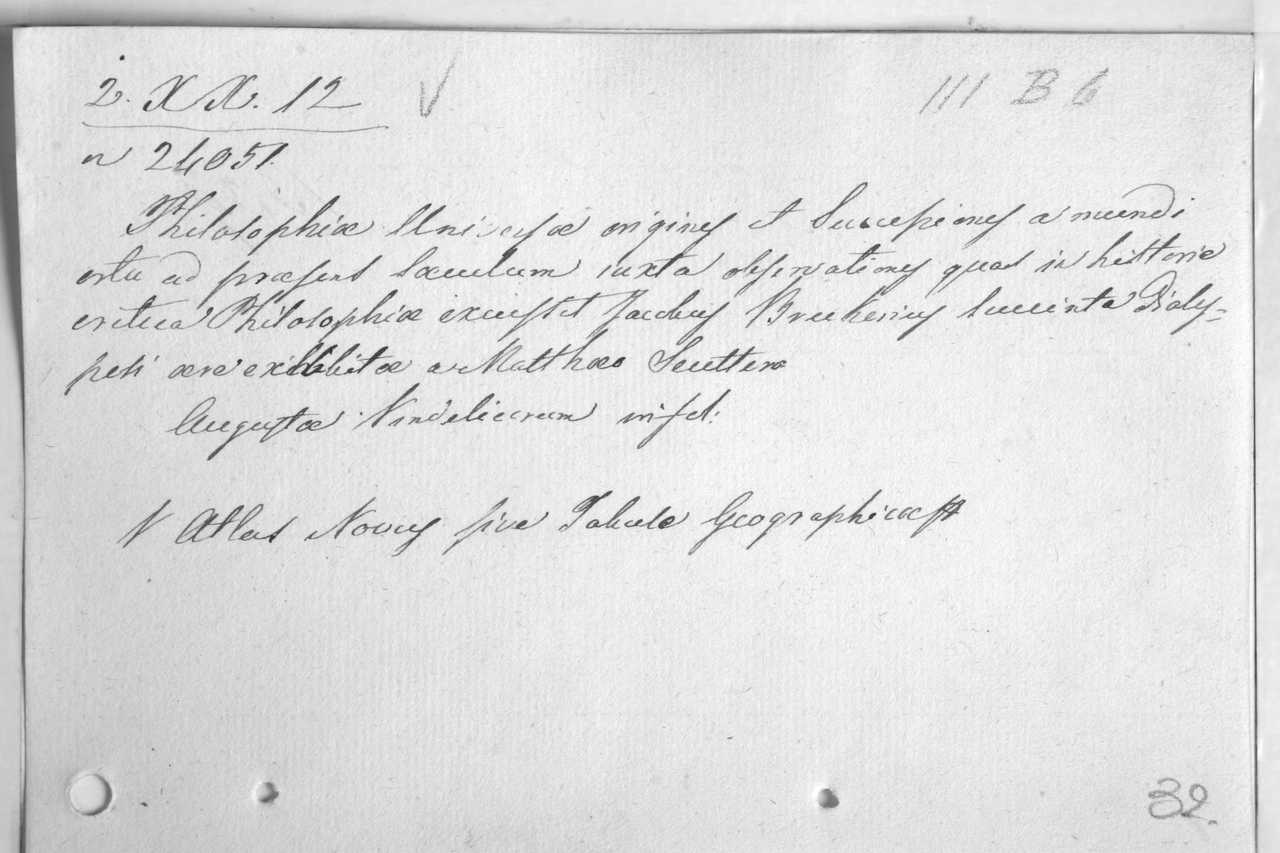 2. XX. 12 V III B 6
n 24051.
Philosophiæ Universæ origines et Successiones a mundi
ortu ad præsens Sæculum iuxta observationes quas in historie
critica Philosophiæ excussit Jacobus Bruckerius succinta Dialy=
psti ære exibbitæ a Matthæo Seuttero
Augustæ Vindelicorum in fol.
V Atlas Novus sive Tabulæ Geographicæ
32.